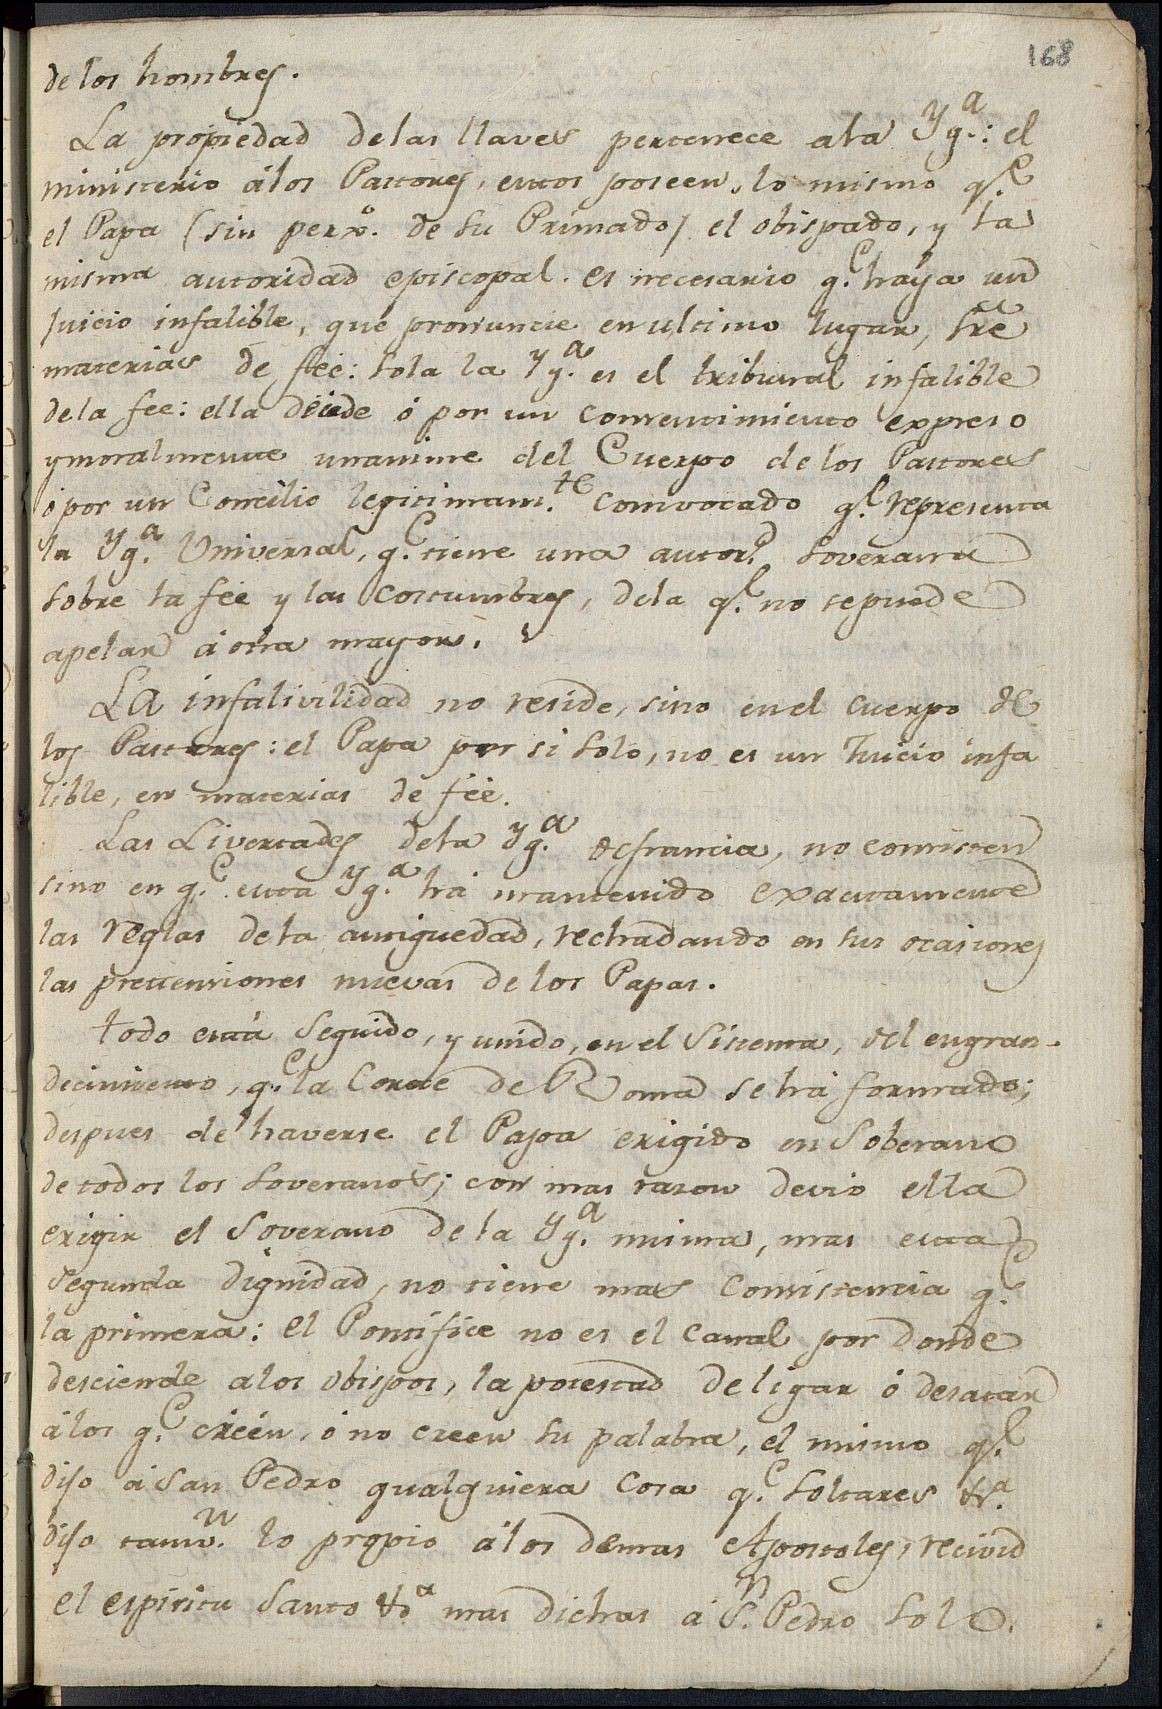 168
de los hombres.
La propiedad delas llaves pertenece ala Yg.ª: el
ministerio álos Pastores, estos poseen, lo mismo q.e
el Papa (sin perx.o de su Primado) el obispado, y la
misma autoridad episcopal. es necesario q.e haya un
Juicio infalible, que pronuncie en ultimo lugar, sre
materias de fee: sola la Yg.ª es el tribunal infalible
dela fee: ella decide ó por un consentimiento expreso
y moralmente unanime del Cuerpo de los Pastores
ó por un Concilio legitimam.te comvocado q.e representa
la Yg.ª Universal, q.e tiene una autor.d soverana
sobre la fee y las costumbres, dela q.l no se puede
apelar á otra mayor.
La infalivilidad no reside, sino en el cuerpo de
los Pastores: el Papa por si solo, no es un Juicio infa
lible, en materias de fee.
Las Livertades dela Yg.ª de francia, no consisten
sino en q.e esta Yg.ª há mantenido exactamente
las reglas dela antiguedad, rechadando en sus ocasiones
las prettensiones nuevas de los Papas.
todo está seguido, y unido, en el Sistema, del engran-
decimiento, q.e la Corte de Roma se há formado;
despues de haverse el Papa erigido en Soberano
de todos los Soveranos; con mas razon devio ella
erigir el Soverano de la Yg.ª misma, mas esta
segunda dignidad, no tiene mas consistencia q.e
la primera: el Pontifice no es el canal por donde
desciende alos obispos, la potestad de ligar ó desatar
álos q.e creén, ó no creen su palabra, el mismo q.e
dijo á San Pedro qualquiera cosa q.e soltares &.ª
dijo tamv.n lo propio álos demas Apostoles, recivid
el espiritu Santo &.ª mas dichas á S.n Pedro solo.